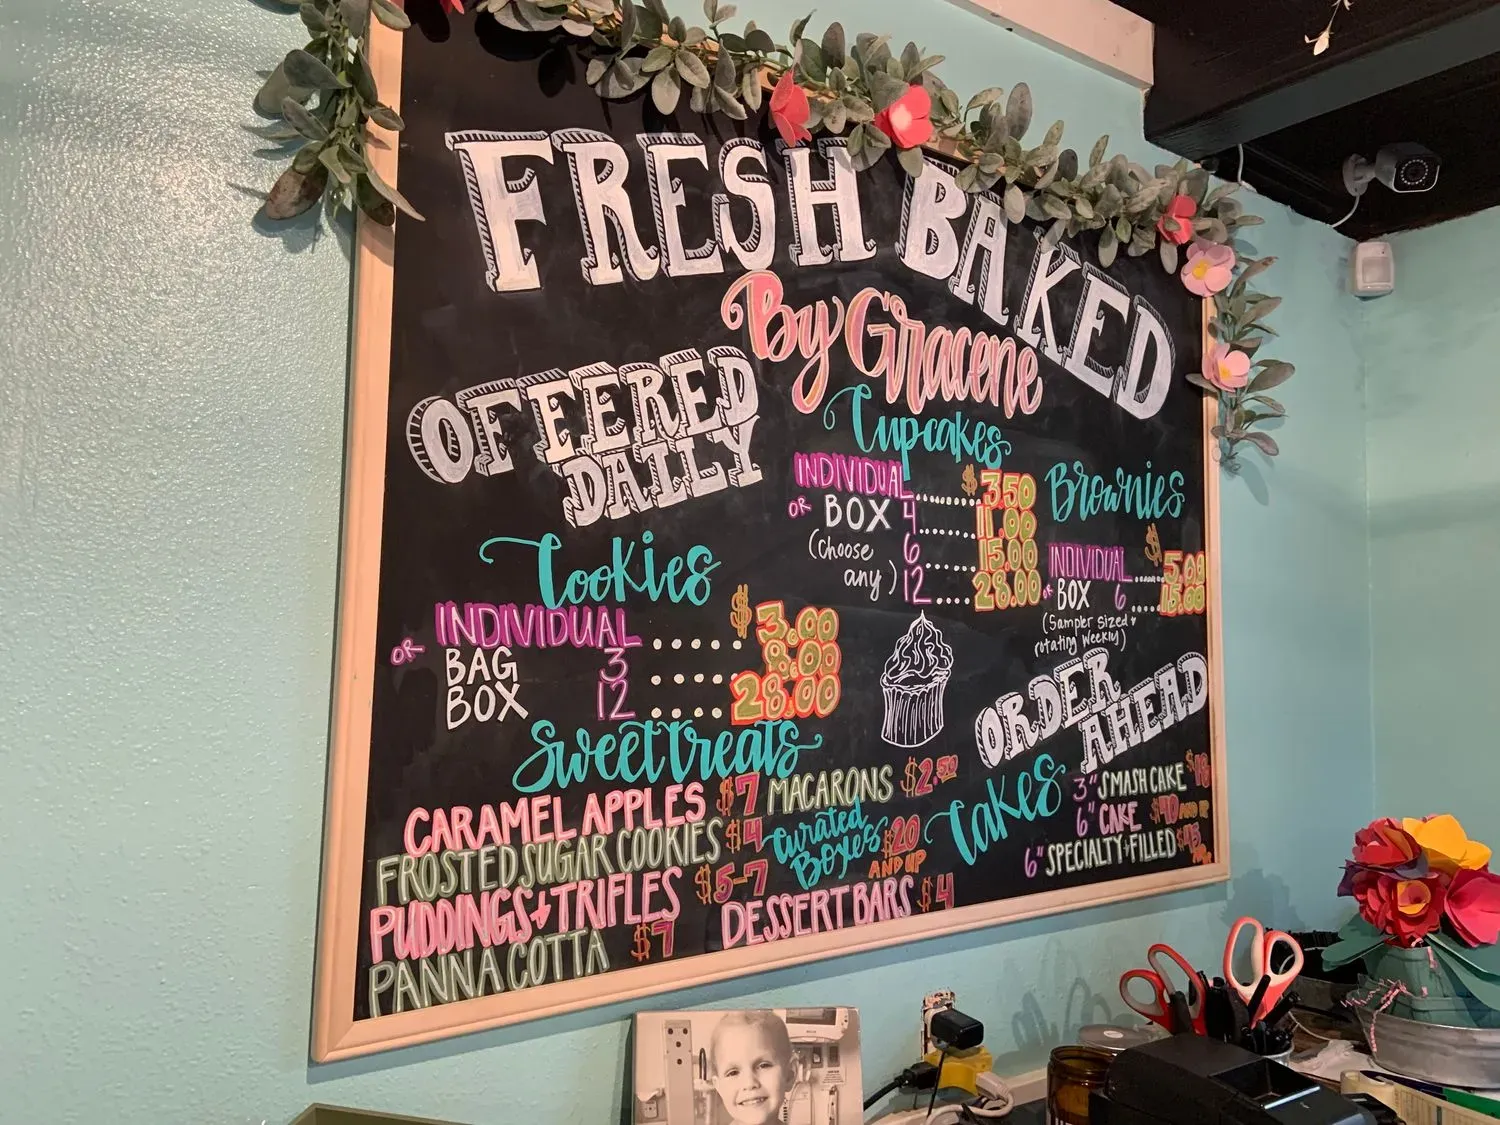 FRESH BAKED
By Gracene
OFFERED
DAILY
Cookies
INDIVIDUAL ..... $3.00
OR BAG 3 .... 8.00
BOX 12 .... 28.00
Cupcakes
INDIVIDUAL ....... $3.50
OR BOX 4 ...... 11.00
(choose 6 ..... 15.00
any) 12 .... 28.00
Brownies
INDIVIDUAL ..... $5.00
OR BOX 6 ..... 15.00
(Sampler sized +
rotating weekly)
Sweet treats
CARAMEL APPLES $7
FROSTED SUGAR COOKIES $4
PUDDINGS + TRIFLES $5-7
PANNA COTTA $7
MACARONS $2.50
Curated
Boxes $20
AND UP
DESSERT BARS $4
ORDER
AHEAD
Cakes
3" SMASH CAKE
6" CAKE $40 AND UP
6" SPECIALTY + FILLED $45